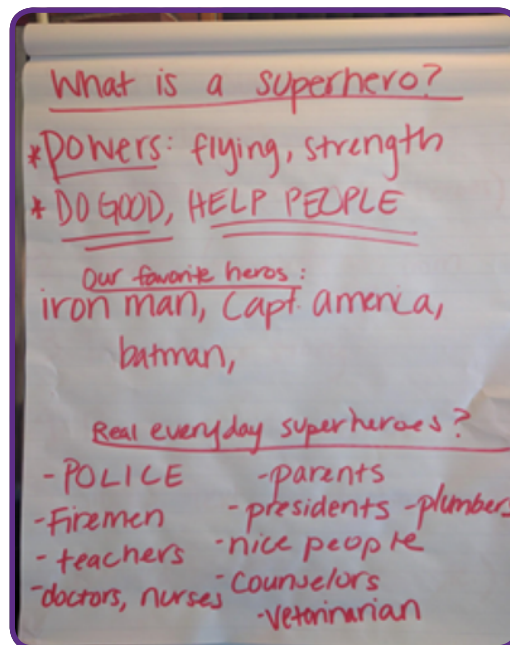 What is a superhero?
* Powers: flying, strength
* DO GOOD, HELP PEOPLE
Our favorite heros:
iron man, Capt. america,
batman,
Real everyday superheroes?
- POLICE
- Firemen
- teachers
- doctors, nurses
- parents
- presidents - plumbers
- nice people
- Counselors
- Vetorinarian